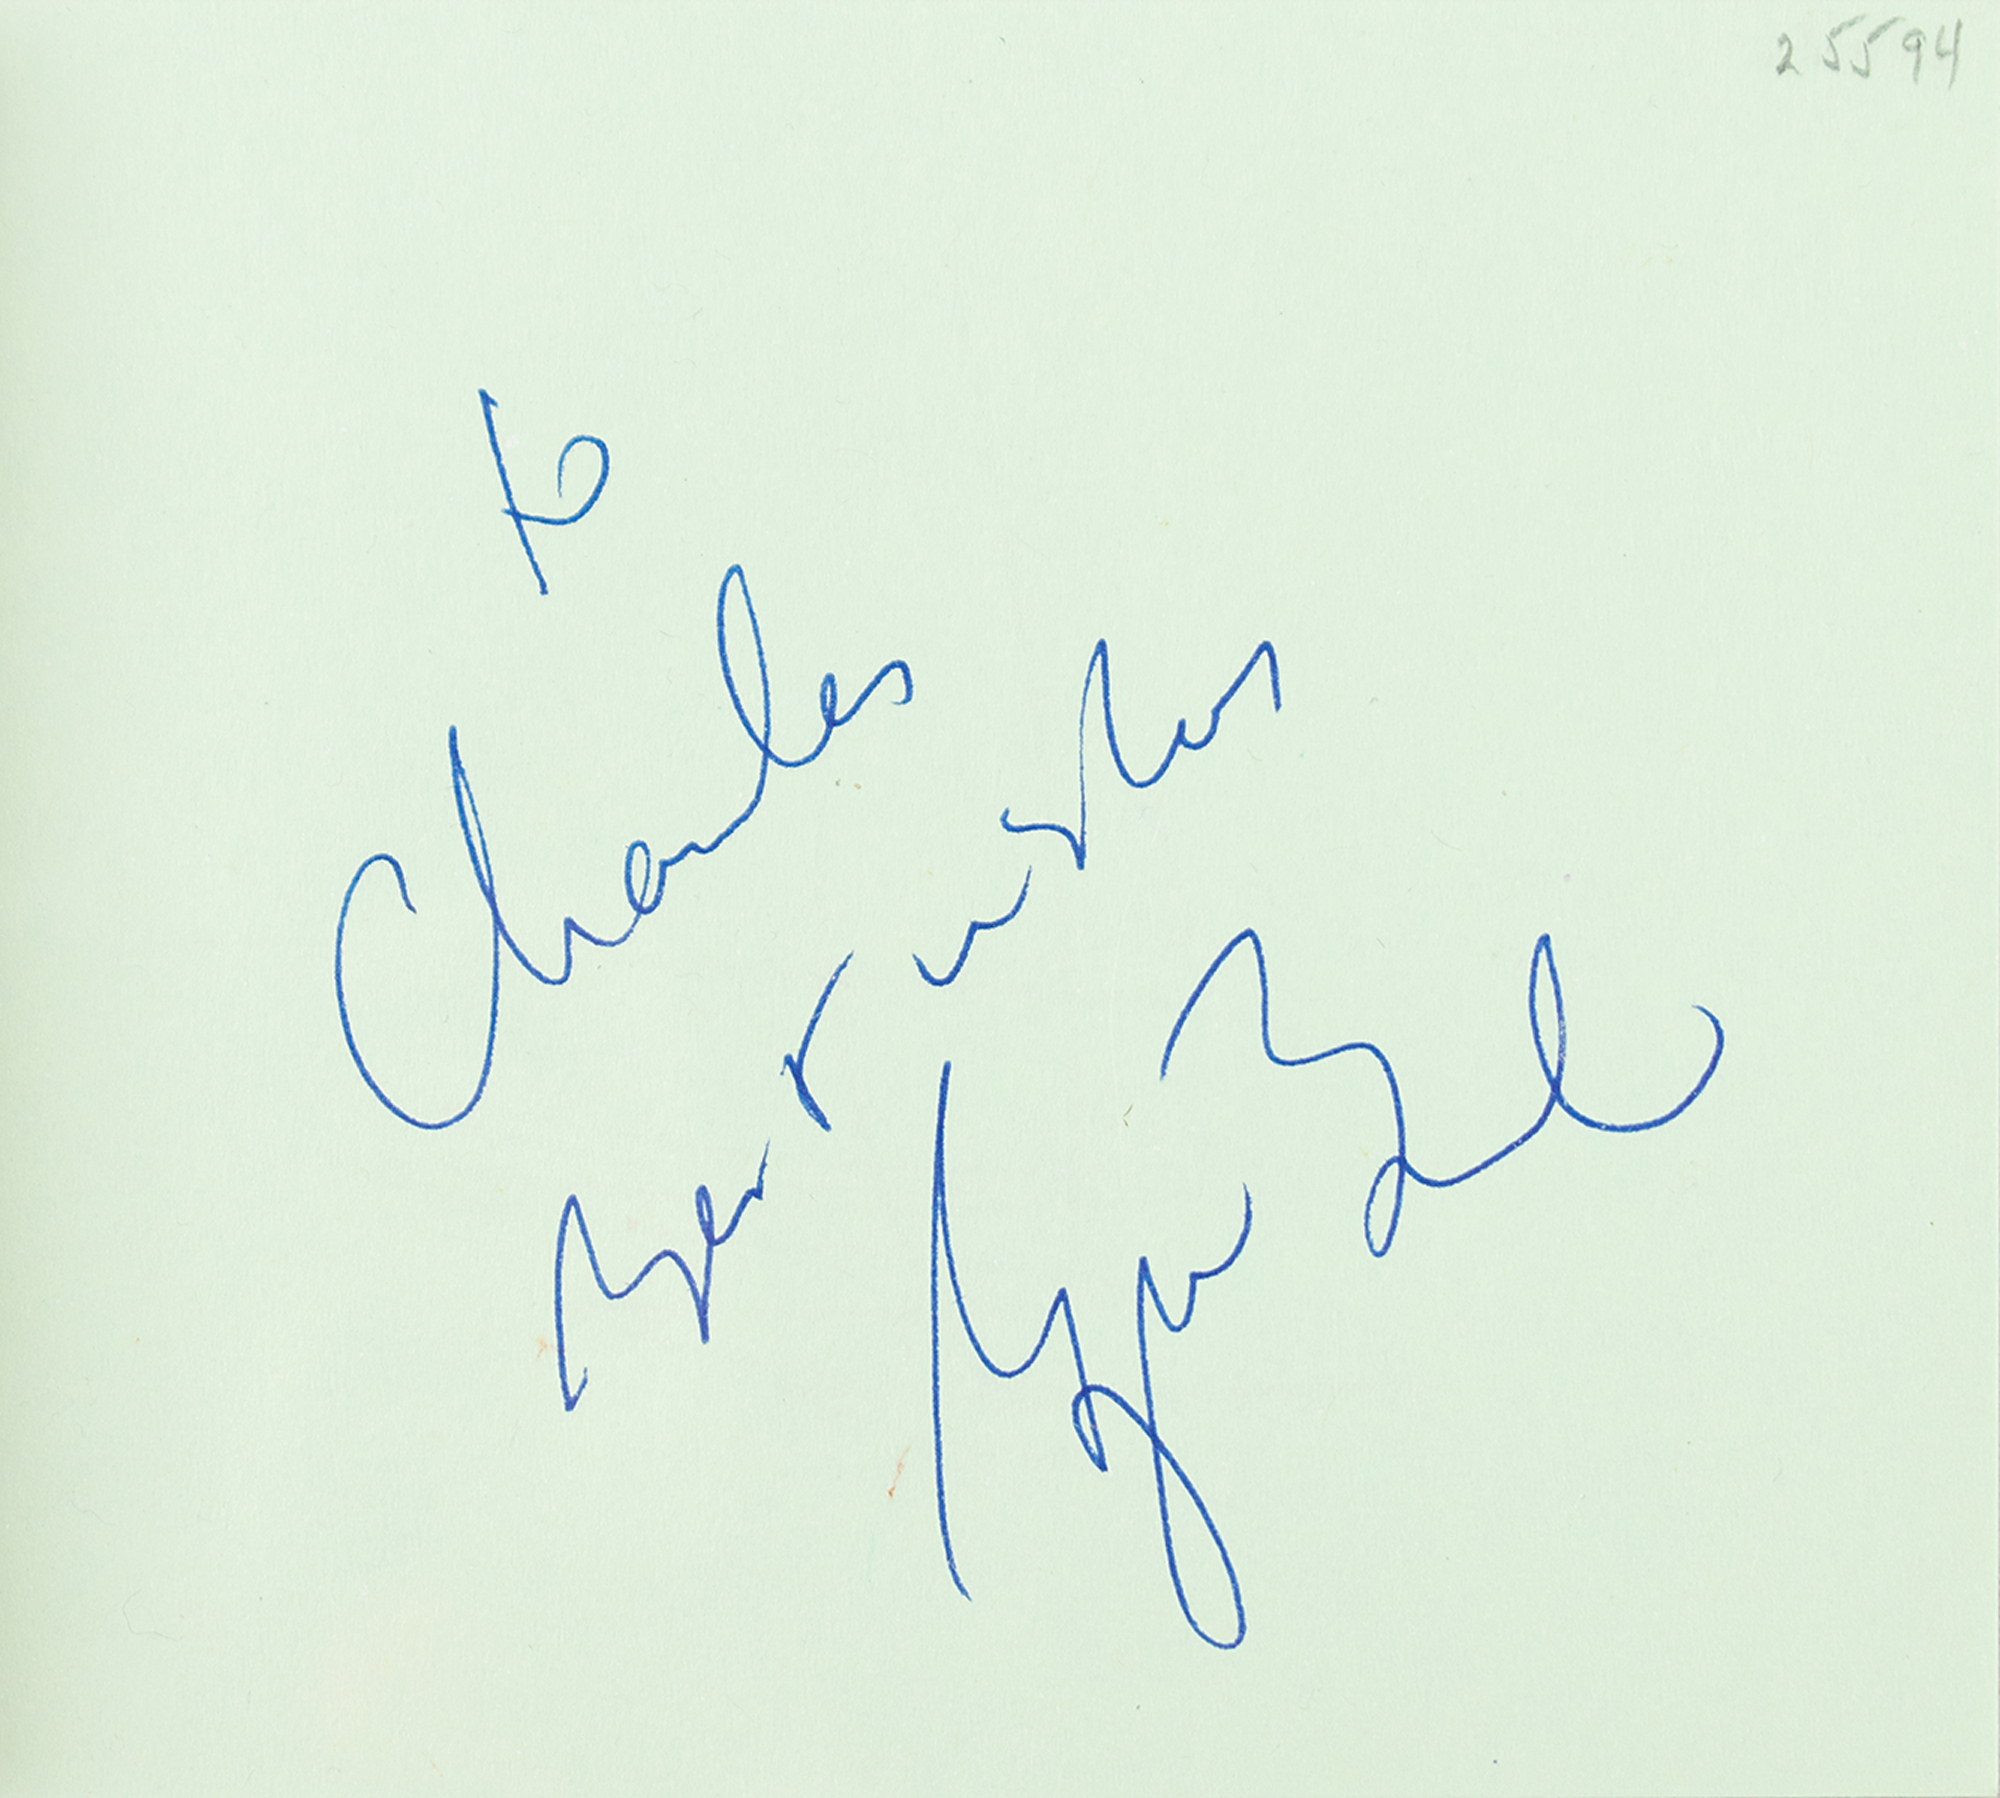 25594
to
Charles
Best wishes